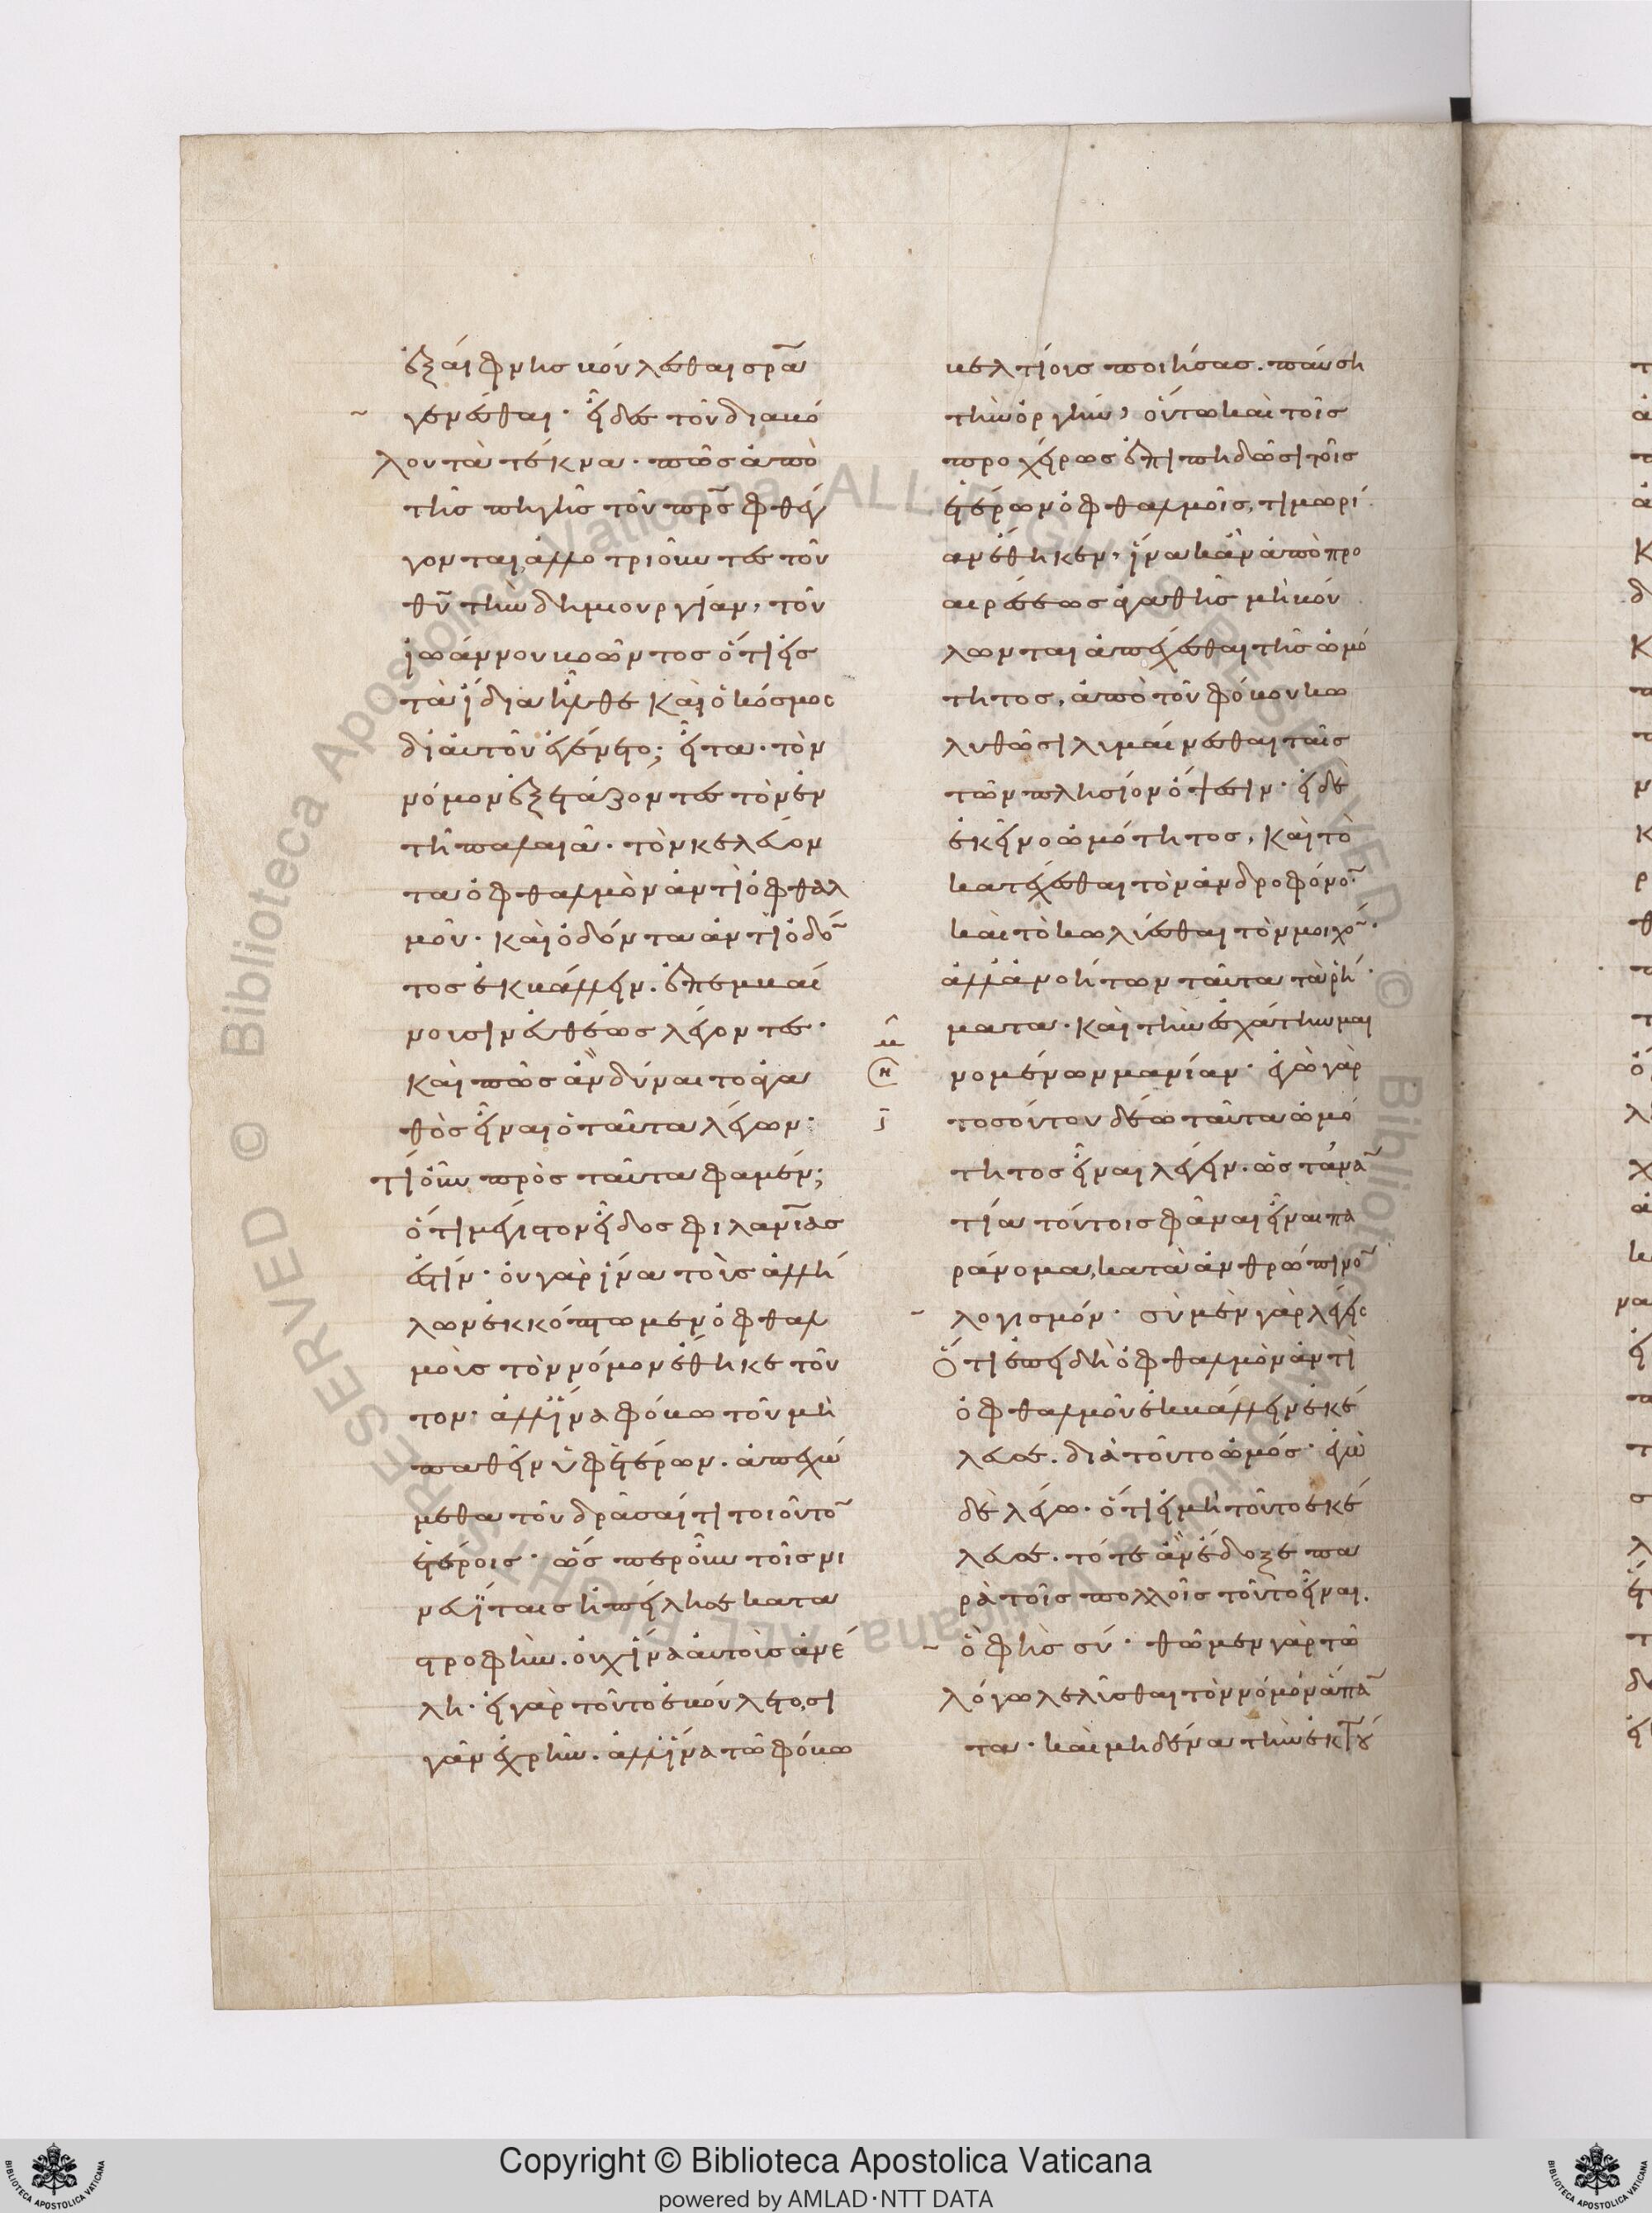 ἐξαίφνης βούλεσθαι σρᾶ
γενέσθαι· εἶδες τοῦ διαβό
λου τὰ τέκνα· πῶς ἀπὸ
τῆς πηγῆς τοῦ πρς φθέγ
γονται, ἀλλοτριοῦντες τοῦ
θυ τὴν δημιουργίαν, τοῦ
ἰωάννου βοῶντος ὅτι εἰς
τὰ ἴδια ἦλθε καὶ ὁ κόσμος
δι αὐτοῦ ἐγένετο; εἶτα· τὸν
νόμον ἐξετάζοντες τὸν ἐν
τῆ παλαιᾶ· τὸν κελεύον
τα ὀφθαλμὸν ἀντὶ ὀφθαλ
μοῦ· καὶ ὀδόντα ἀντὶ ὀδό
τος ἐκβάλλειν. ἐπεμβαί
νουσιν εὐθέως λέγοντες·
καὶ πῶς ἂν δύναιτο ἀγα
θὸς εἶναι ὁ ταῦτα λέγων;
τί οὖν πρὸς ταῦτα φαμέν;
ὅτι μέγιστον εἶδος φιλανίας
ἐστίν· οὐ γὰρ ἵνα τοὺς ἀλλή
λων ἐκκόπτωμεν ὀφθαλ
μοὺς τὸν νόμον ἔθηκε τοῦ
τον· ἀλλ ἵνα φόβω τοῦ μὴ
παθεῖν ὑφ ἑτέρων. ἀποσχώ
μεθα τοῦ δρᾶσαί τι τοιοῦτο
ἑτέροις· ὥσπερ οὖν τοῖς νι
νευΐταις ἠπείλησε κατα
στροφὴν. οὐχ ἵνα αὐτοὺς ἀνέ
λη· εἰ γὰρ τοῦτο ἐβούλετο, σι
γᾶν ἐχρῆν. ἀλλ ἵνα τῶ φόβω
βελτίους ποιήσας. παύση
τὴν ὀργὴν, οὕτω καὶ τοῖς
προχείρως ἐπιπηδῶσι τοῖς
ἑτέρων ὀφθαλμοῖς, τιμωρί
αν ἔθηκεν, ἵνα κἂν ἀπὸ προ
αιρέσεως ἀγαθῆς μὴ βού
λωνται ἀπέχεσθαι τῆς ὠμό
τητος, ἀπὸ τοῦ φόβου κω
λυθῶσι λυμαίνεσθαι ταῖς
τῶν πλησίον ὄψεσιν· εἰ δὲ
ἐκεῖνο ὠμότητος, καὶ τὸ
κατέχεσθαι τὸν ἀνδροφόνο
καὶ τὸ κωλύεσθαι τὸν μοιχ·
ἀλλ ἀνοήτων ταῦτα τὰ ῥή
ματα· καὶ τὴν ἐσχάτην μαι
νομένων μανίαν· ἐγὼ γὰρ
τοσούτου δέω ταῦτα ὠμό
τητος εἶναι λέγειν. ὡς τἀνα
τία τούτοις φᾶναι εἶναι πα
ράνομα, κατὰ ἀνθρώπινο
λογισμόν· σὺ μὲν γὰρ λέγεις
ὅτι ἐπειδὴ ὀφθαλμὸν ἀντὶ
ὀφθαλμοῦ ἐκβάλλειν ἐκέ
λευσε. διὰ τοῦτο ὠμός· ἐγὼ
δὲ λέγω. ὅτι εἰ μὴ τοῦτο ἐκέ
λευσε. τότε ἂν ἔδοξε πα
ρὰ τοῖς πολλοῖς τοῦτο εἶναι.
ὃ φὴς σύ· θῶμεν γὰρ τῶ
λόγω λελύσθαι τὸν νόμον ἅπα
τα· καὶ μηδένα τὴν ἐκ του